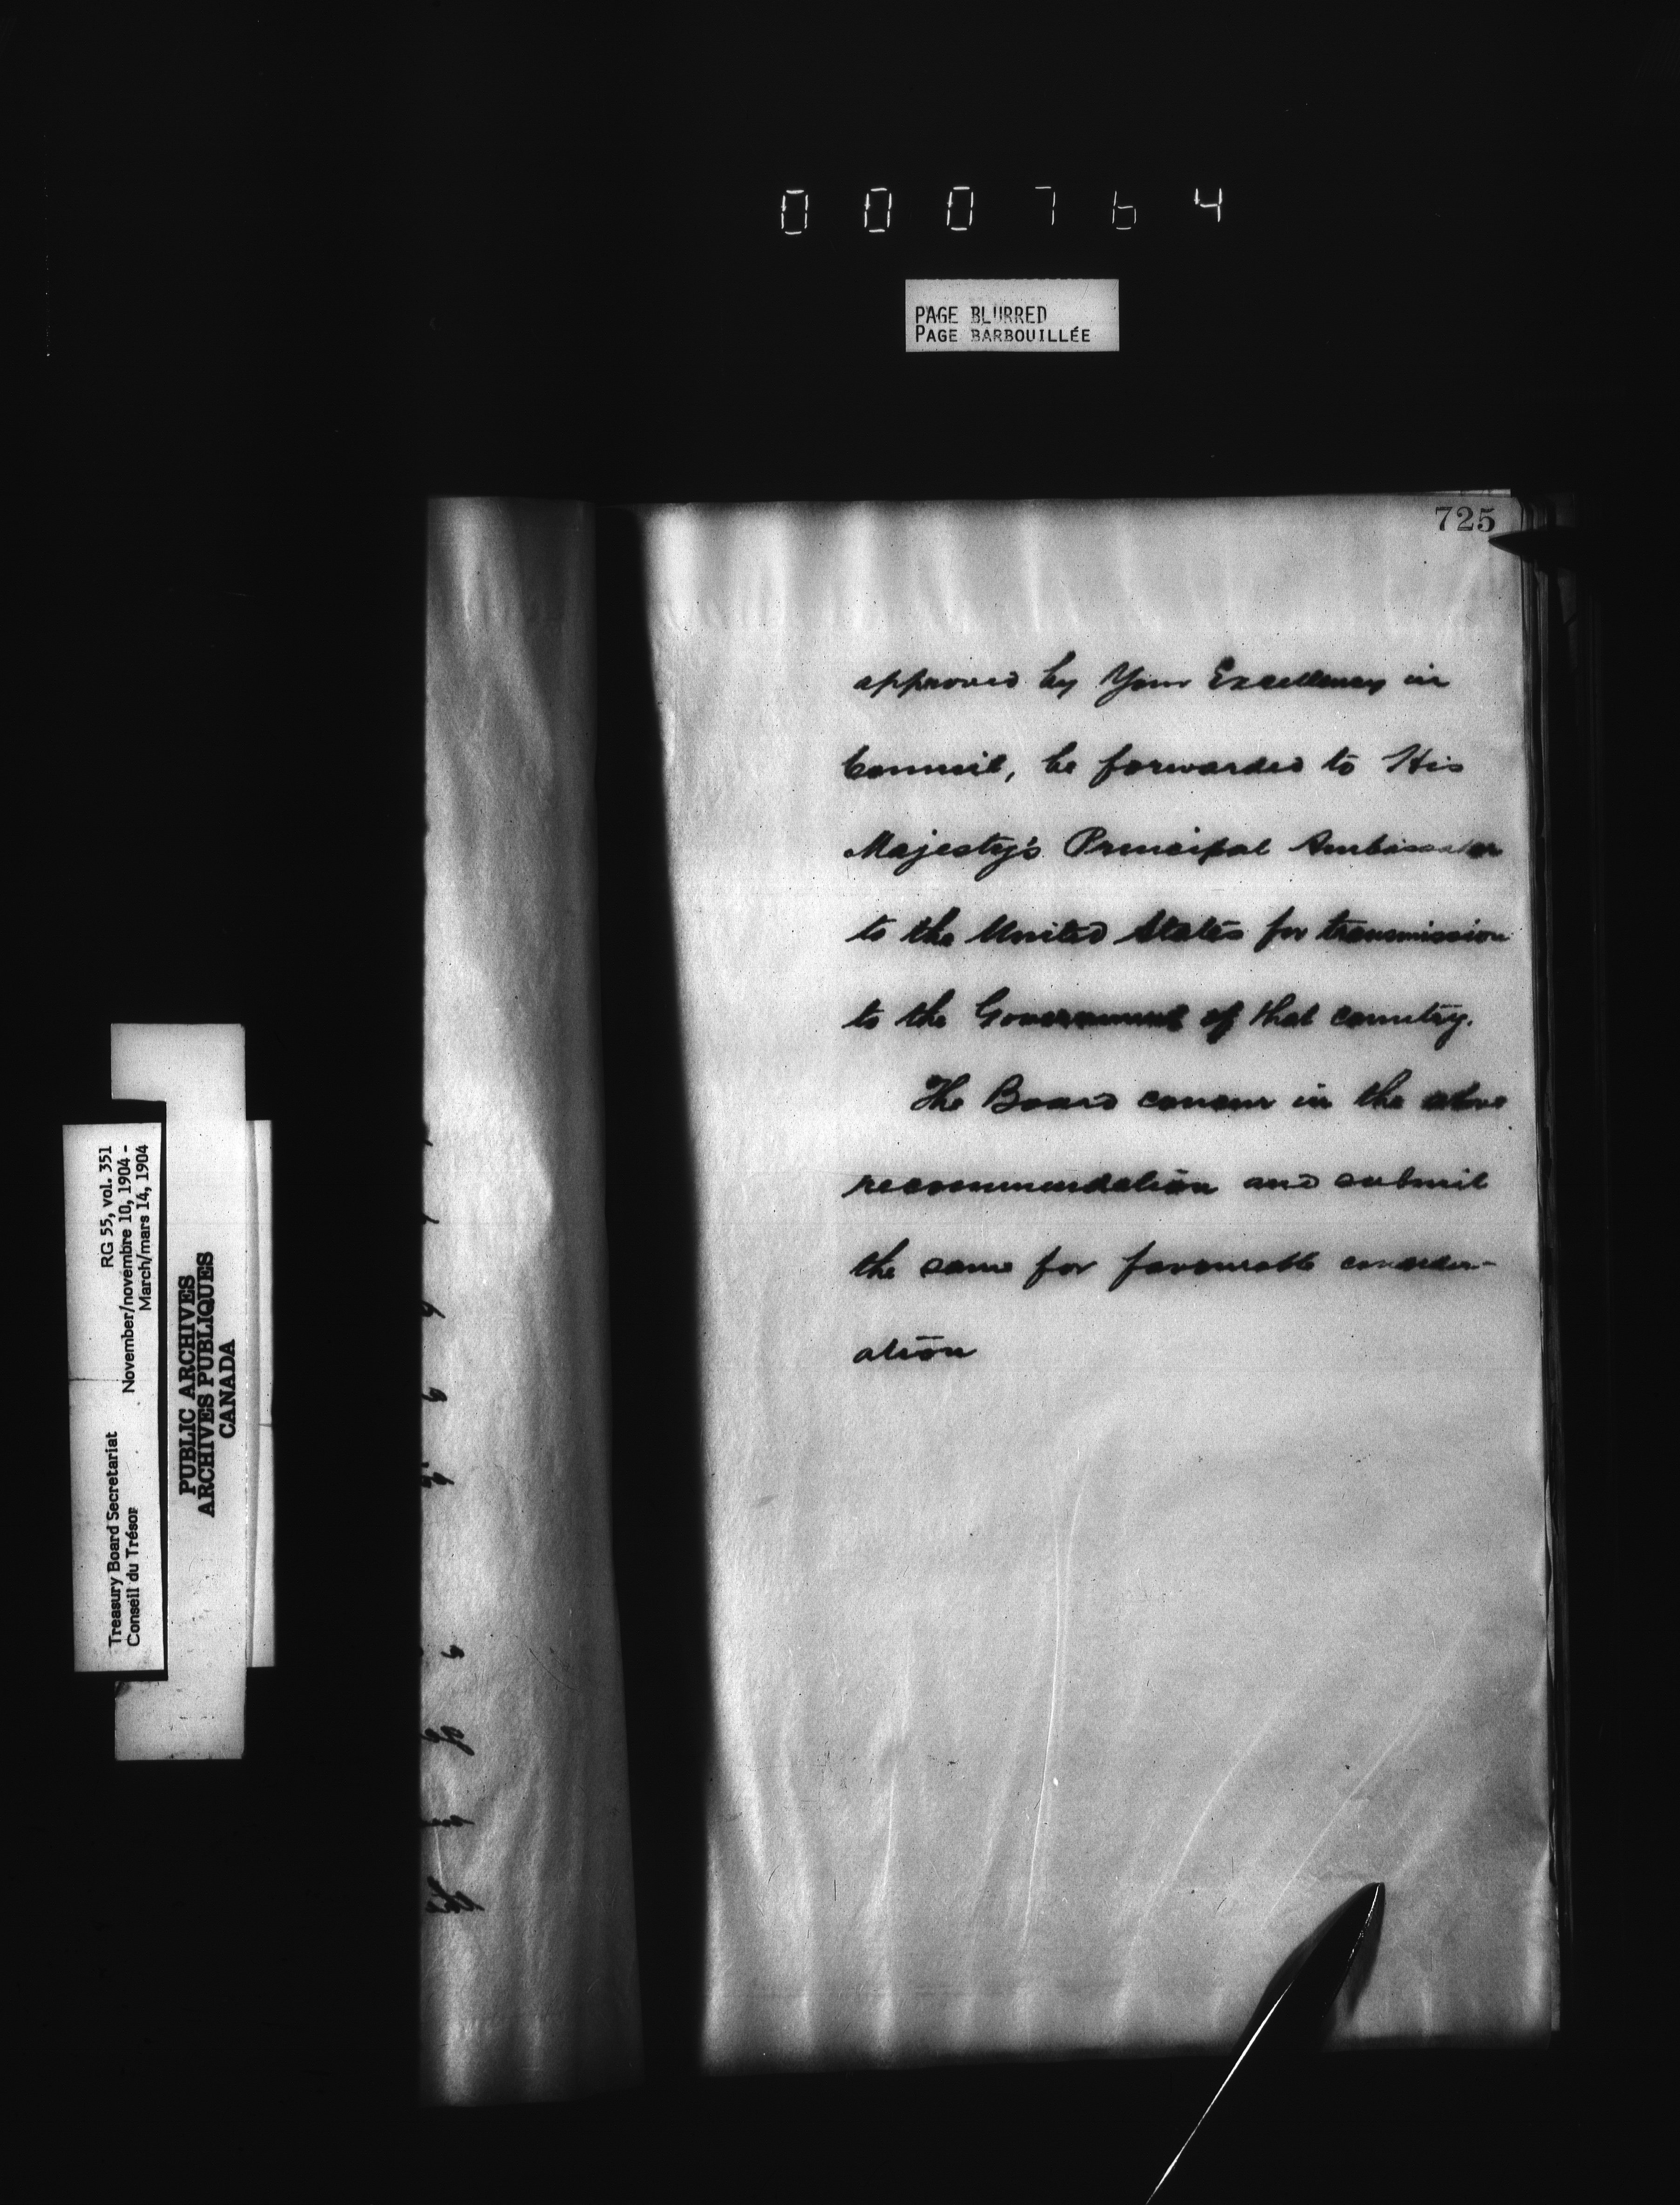 000764
PAGE BLURRED
PAGE BARBOUILLÉE
725
approved by Your Excellency in
Council, be forwarded to His
Majesty's Principal Ambassador
to the United States for transmission
to the Government of that country.
The Board concur in the above
recommendation and submit
the same for favourable consider-
ation
Treasury Board Secretariat RG 55, vol. 351
Conseil du Trésor November/novembre 10, 1904 -
March/mars 14, 1904
PUBLIC ARCHIVES
ARCHIVES PUBLIQUES
CANADA